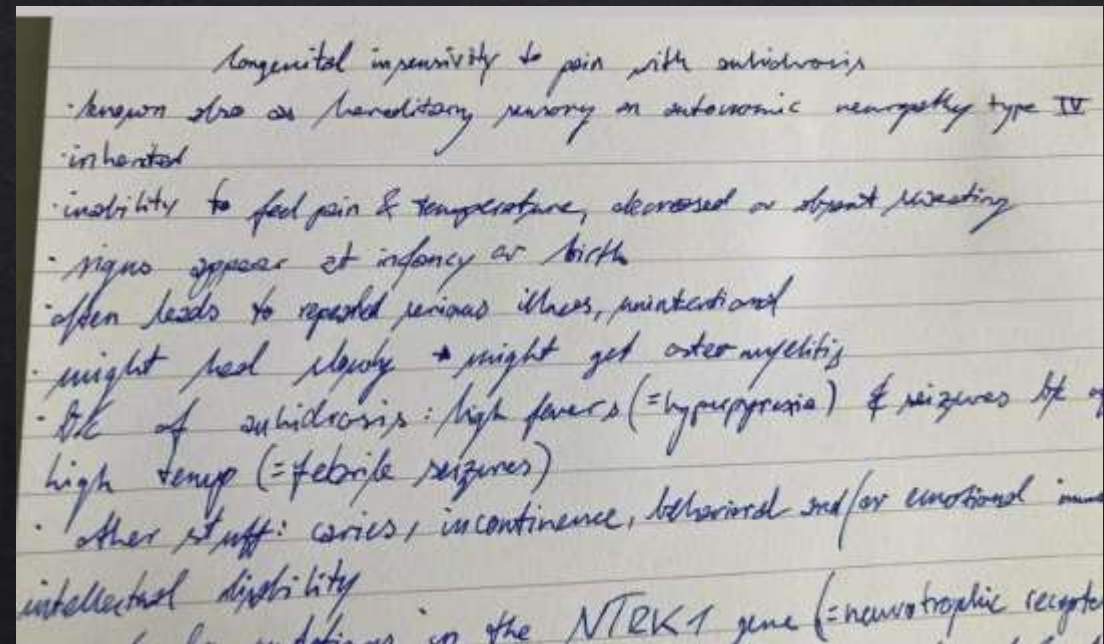 Congenital insensivity to pain with anhidrosis
· known also as hereditary sensory an autonomic neuropathy type IV
· inherited
· inability to feel pain & temperature, decreased or absent sweating
· signs appear at infancy or birth
· often leads to repeated serious illness, unintentional
· might heal slowly → might get osteomyelitis
· bc of anhidrosis: high fevers (=hyperpyrexia) & seizures bc of
high temp (=febrile seizures)
· other stuff: caries, incontinence, behavioral and/or emotional
intellectual disability
mutations in the NTRK1 gene (=neurotrophic receptor